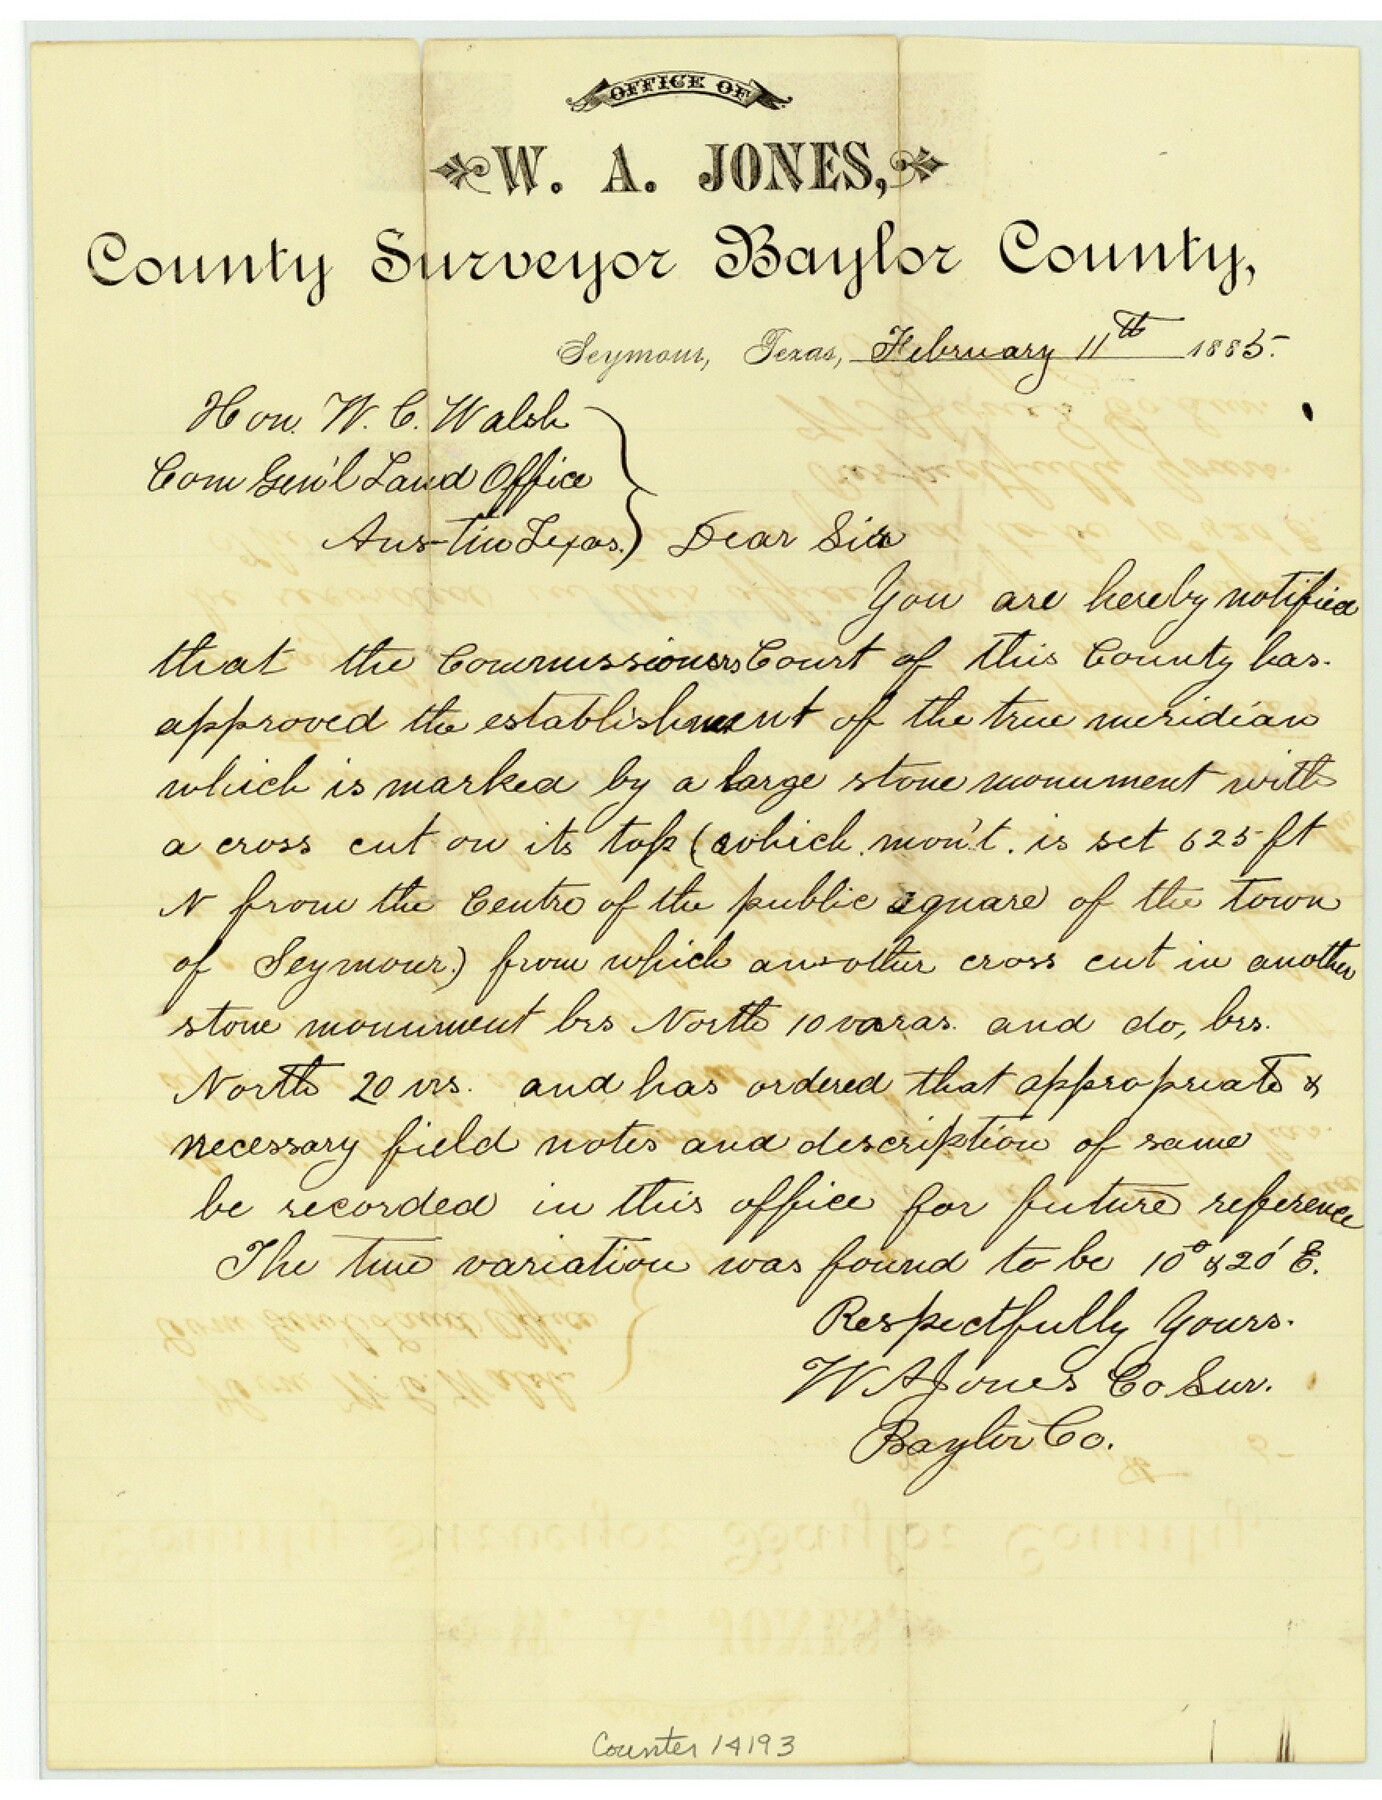 OFFICE OF
W. A. JONES,
County Surveyor Baylor County,
Seymour, Texas, February 11th 1885.
Hon. W. C. Walsh
Com Gen'l Land Office
Austin Texas.) Dear Sir
You are hereby notified
that the Commissioners Court of this County has.
approved the establishment of the true meridian
which is marked by a large stone monument with
a cross cut on its top (which mon't. is set 625 ft
N from the Centre of the public square of the town
of Seymour.) from which another cross cut in another
stone monument brs North 10 varas. and do, brs.
North 20 vrs. and has ordered that appropriate &
necessary field notes and description of same
be recorded in this office for future reference
The true variation was found to be 10° & 20' E.
Respectfully Yours.
W A Jones Co Sur.
Baylor Co.
Counter 14193